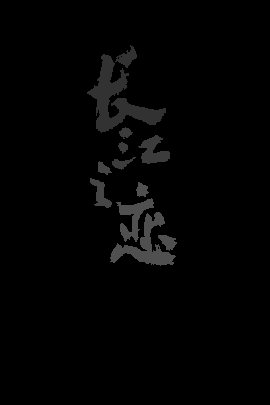 长江之恋